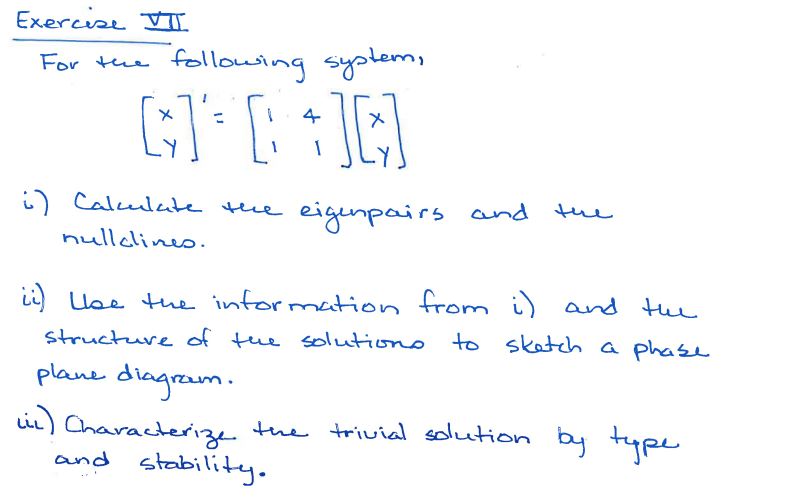 Exercise VII
For the following system,
[x y]' = [1 4 1 1][x y]
i) Calculate the eigenpairs and the
nullclines.
ii) Use the information from i) and the
structure of the solutions to sketch a phase
plane diagram.
iii) Characterize the trivial solution by type
and stability.